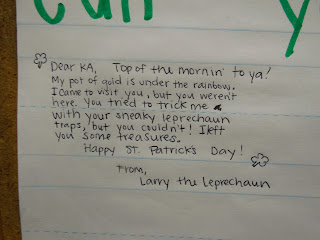 Dear KA, Top of the mornin' to ya!
My pot of gold is under the rainbow.
I came to visit you, but you weren't
here. You tried to trick me
with your sneaky leprechaun
traps, but you couldn't! I left
you some treasures.
Happy St. Patrick's Day!
From,
Larry the leprechaun